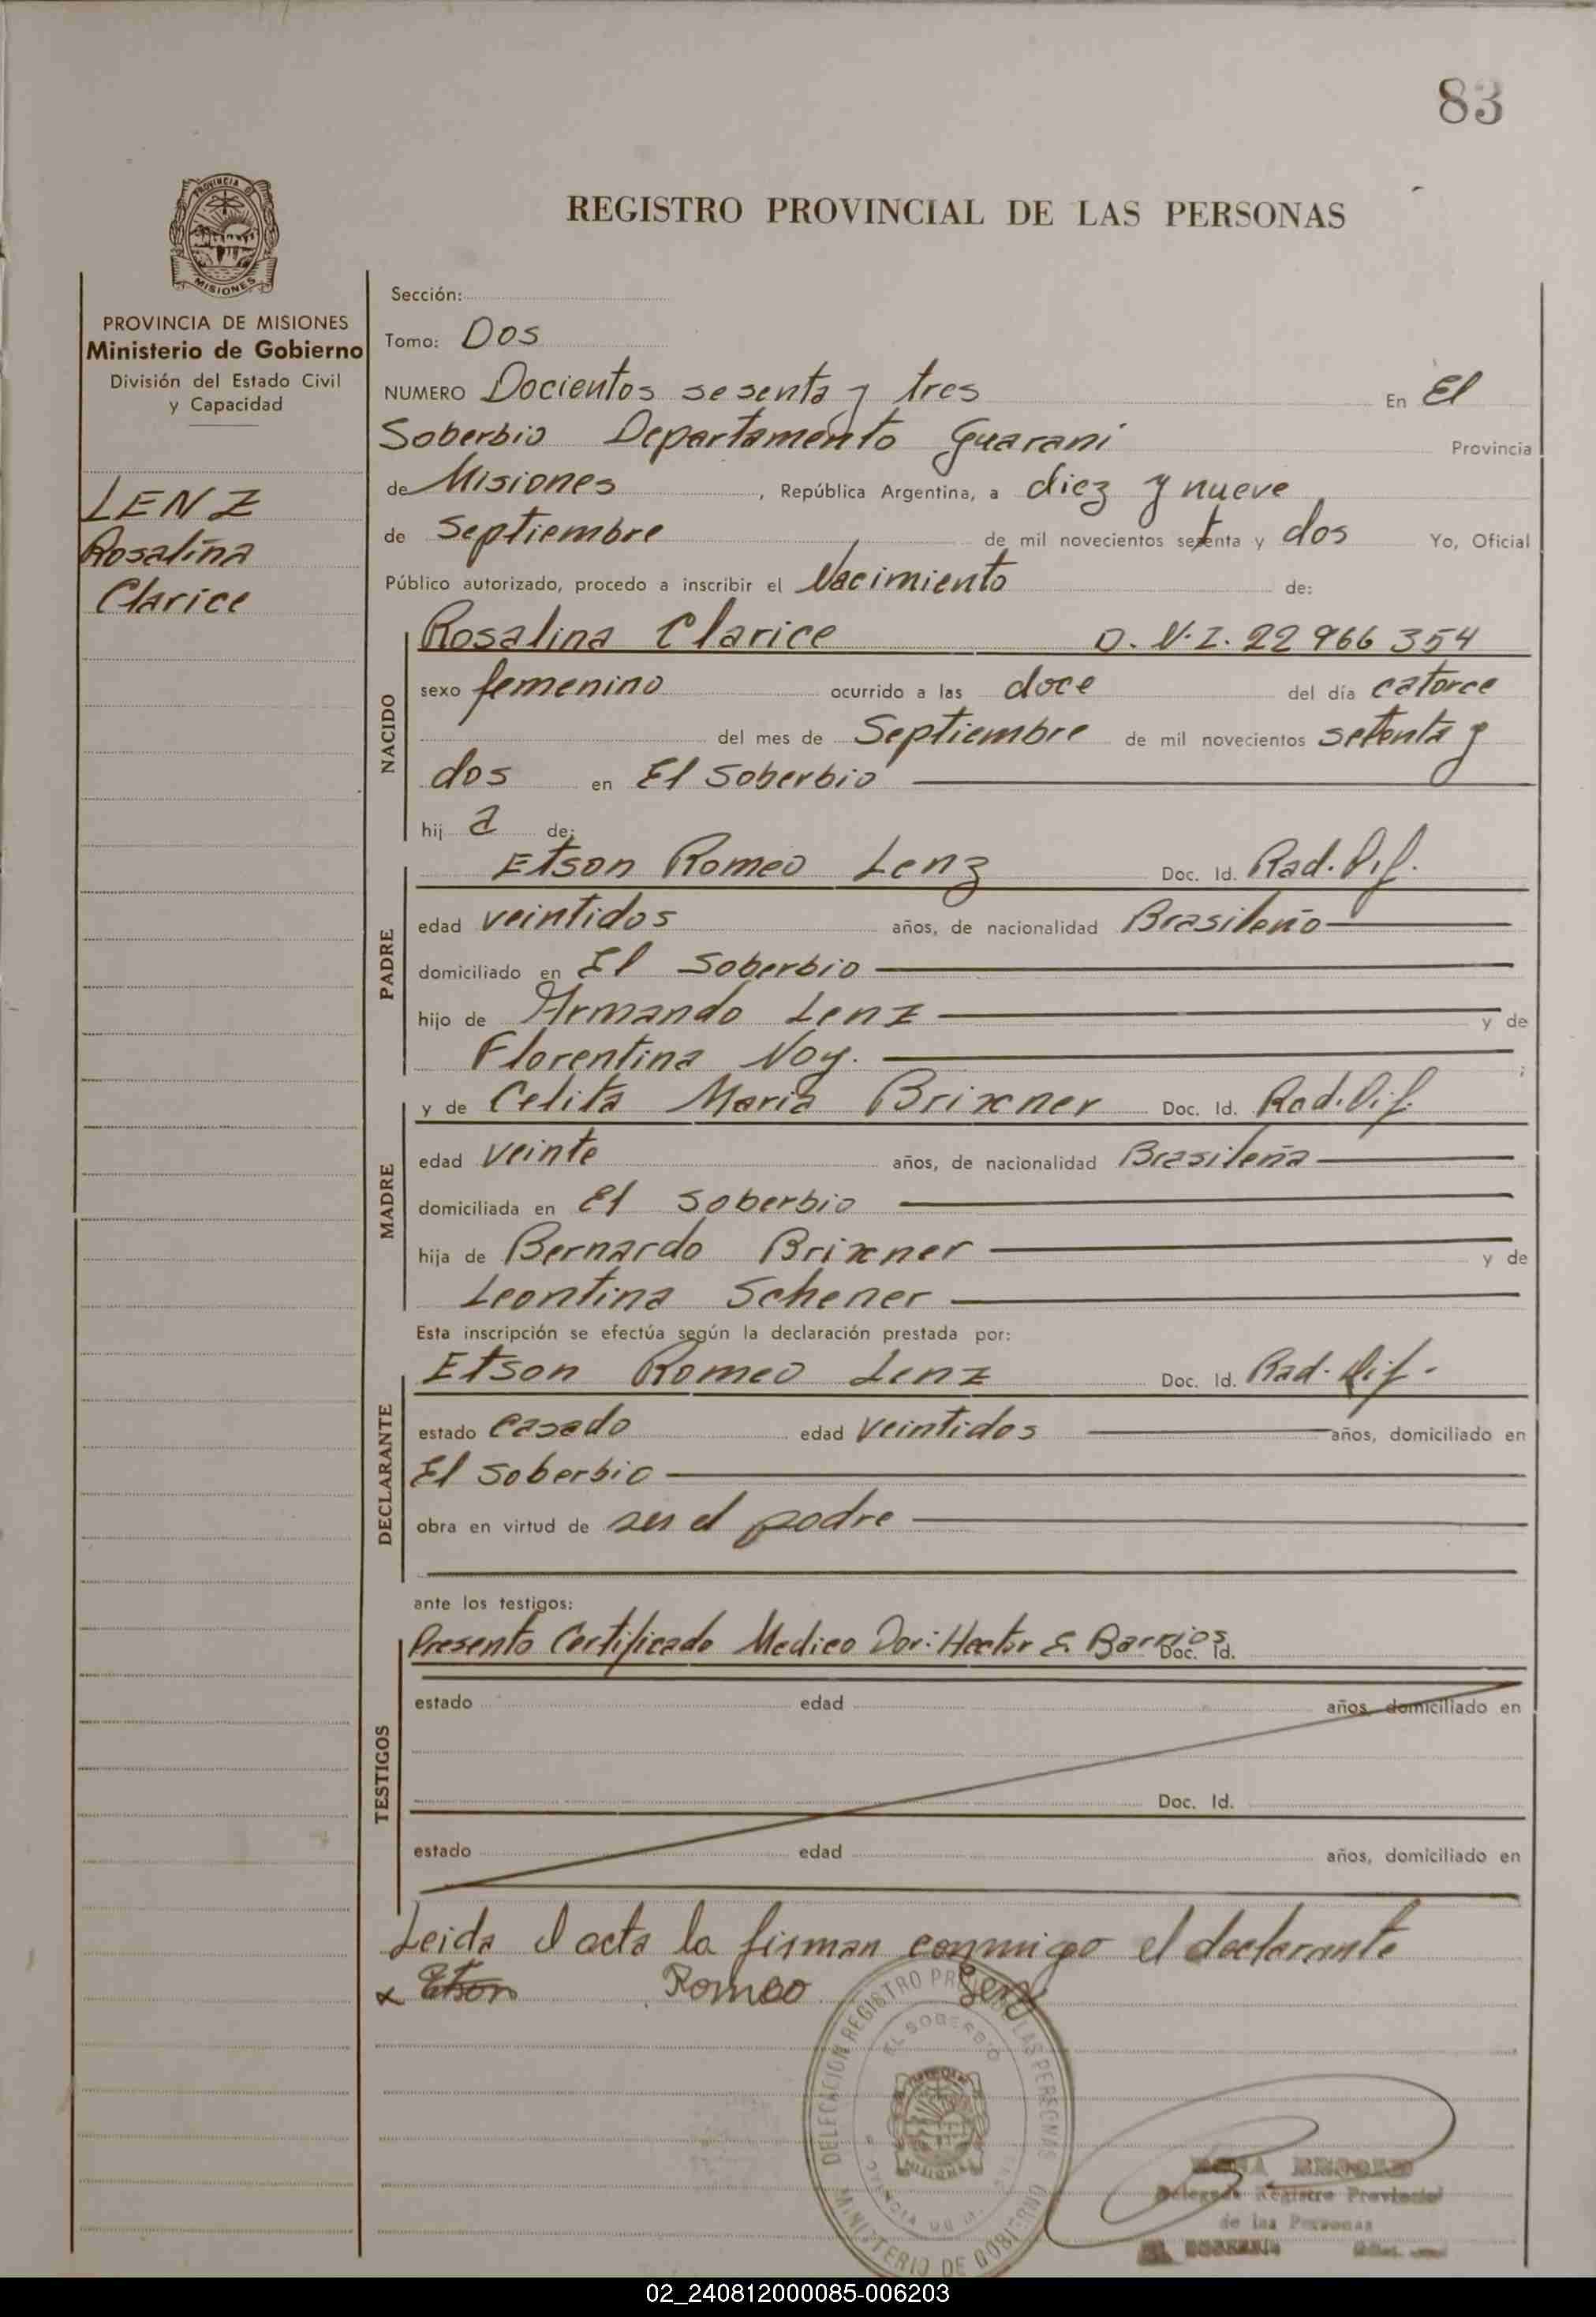 83
PROVINCIA DE
MISIONES
REGISTRO PROVINCIAL DE LAS PERSONAS
PROVINCIA DE MISIONES
Ministerio de Gobierno
División del Estado Civil
y Capacidad
LENZ
Rosalina
Clarice
Sección:
Tomo: Dos
NUMERO Docientos sesenta y tres En El
Soberbio Departamento Guarani Provincia
de Misiones, República Argentina, a diez y nueve
de Septiembre de mil novecientos setenta y dos Yo, Oficial
Público autorizado, procedo a inscribir el Nacimiento de:
NACIDO
Rosalina Clarice D.N.I. 22 966 354
sexo femenino ocurrido a las doce del día catorce
del mes de Septiembre de mil novecientos setenta y
dos en El Soberbio
hij a de:
PADRE
Etson Romeo Lenz Doc. Id. Rad. Dif.
edad veintidos años, de nacionalidad Brasileño
domiciliado en El Soberbio
hijo de Armando Lenz y de
Florentina Noy. ;
MADRE
y de Celita Maria Brixner Doc. Id. Rad. Dif.
edad veinte años, de nacionalidad Brasileña
domiciliada en El Soberbio
hija de Bernardo Brixner y de
Leontina Schener
Esta inscripción se efectúa según la declaración prestada por:
DECLARANTE
Etson Romeo Lenz Doc. Id. Rad. Dif.
estado casado edad veintidos años, domiciliado en
El Soberbio
obra en virtud de ser el padre
ante los testigos:
TESTIGOS
Presento Certificado Medico Dor: Hector E. Barrios Doc. Id.
estado edad años, domiciliado en
Doc. Id.
estado edad años, domiciliado en
Leida el acta la firman conmigo el declarante
x Etson Romeo Lenz
DELEGACION REGISTRO PROVINCIAL DE LAS PERSONAS
EL SOBERBIO
MISIONES
MINISTERIO DE GOBIERNO
Delegado Registro Provincial
de las Personas
EL SOBERBIO
02_240812000085-006203